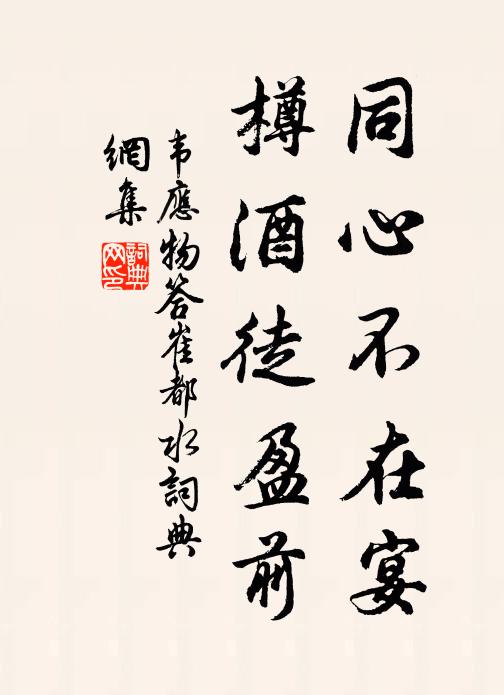 同心不在宴
樽酒徒盈前
韦應物答崔都水詞典
網集
詞典
网印